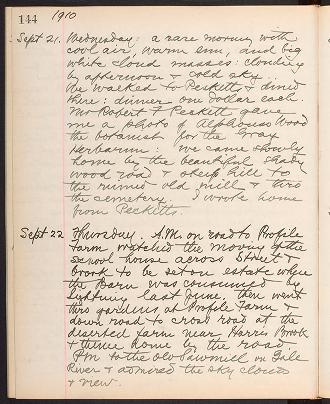 144 1910
Sept 21. Wednesday: a rare morning with
cool air, warm sun, and big
white cloud masses: cloudy
by afternoon & cold sky.
We walked to Peckett's & dined
there: dinner one dollar each.
Mr Robert P Peckett gave
me a photo of Alphonso Wood
the botanist for the Gray
Herbarium: We came slowly
home by the beautiful shady
wood road & sheep hill to
the ruined old mill & thro
the cemetery. I wrote home
from Pecketts.
Sept 22 Thursday. A.M. on road to Profile
Farm watched the moving of the
school house across Street &
brook to be set on estate where
the Barn was consumed by
lightning last June, then went
thro gardens at Profile Farm &
down road to cross road at the
deserted farm near Harris Brook
& thence home by the road.
P.M to the old Sawmill on Gale
River & admired the sky clouds
& view.